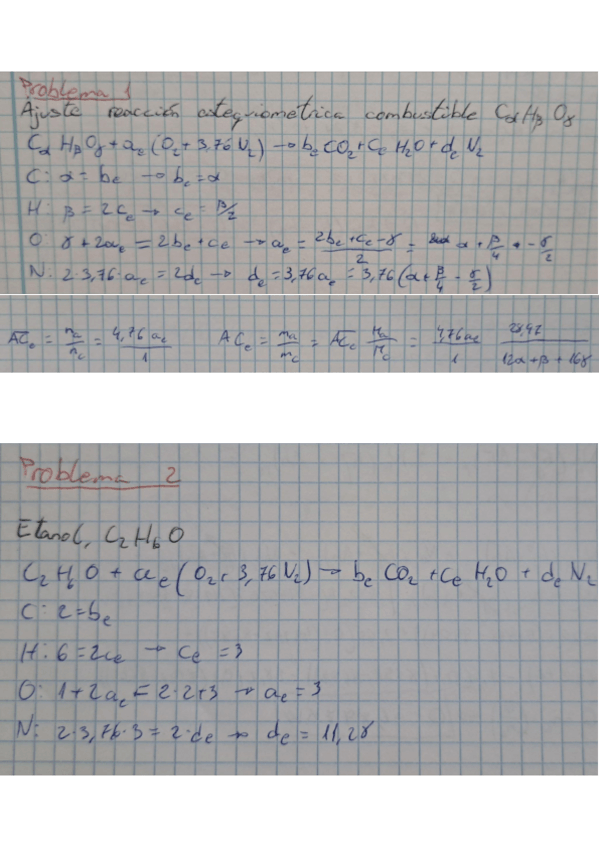 Problema 1
Ajuste reacción estequiometrica combustible CαHβOγ
CαHβOγ + ae(O2+3,76N2) → beCO2+CeH2O+deN2
C: α = be → be = α
H: β = 2ce → ce = β/2
O: γ + 2ae = 2be + ce → ae = (2be + ce - γ)/2 = α + β/4 - γ/2
N: 2·3,76·ae = 2de → de = 3,76ae = 3,76(α + β/4 - γ/2)
ACe = na/nc = 4,76 ae/1 ACe = ma/mc = ACe Ma/Mc = 4,76ae/1 /(12α+β+16γ)
Problema 2
Etanol, C2H6O
C2H6O + ae(O2+3,76N2) → beCO2+CeH2O+deN2
C: 2 = be
H: 6 = 2ce → ce = 3
O: 1+2ae = 2·2+3 → ae = 3
N: 2·3,76·3 = 2·de → de = 11,28